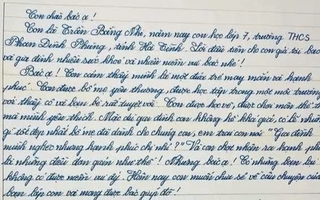 Con chào bác ạ!
Con là Trần Đăng Phi, năm nay con học lớp 7, trường THCS
Phan Đình Phùng, tỉnh Hà Tĩnh. Lời đầu tiên cho con gửi tới bác
và gia đình nhiều sức khoẻ và nhiều niềm vui bác nhé!
Bác ạ! Con cảm thấy mình là một đứa trẻ may mắn và hạnh
phúc. Con được bố mẹ yêu thương, được học tập trong một môi trường
với thầy cô và bạn bè rất tuyệt vời. Con được học vẽ, được chơi môn thể thao
mà mình yêu thích. Mặc dù gia đình con không hề khá giả, có lẽ những
gì tốt đẹp nhất bố mẹ đã dành cho chúng con, em trai con nói: "Gia đình
mình nghèo nhưng hạnh phúc chị nhỉ?" Và con chợt nhận ra hạnh phúc
là những điều đơn giản như thế! Nhưng bác ạ! Có những bạn lại
không có được niềm vui ấy. Hôm nay con muốn chia sẻ về câu chuyện của
bạn lớp con với mong được bác giúp đỡ!